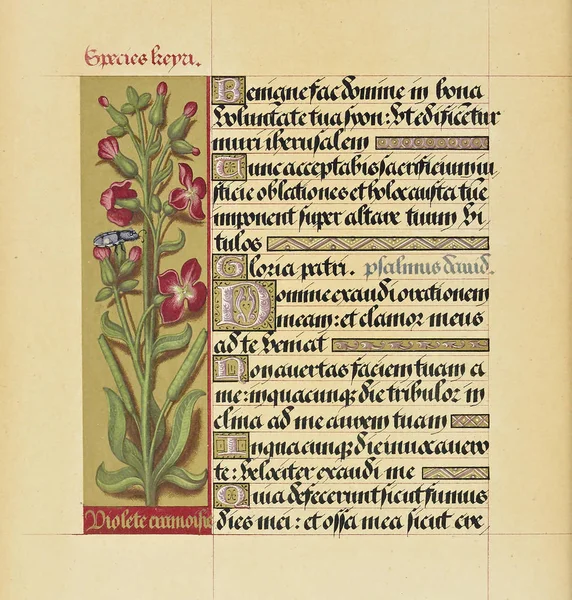 Species keyri.
Benigne fac domine in bona
voluntate tua syon: vt edificētur
muri iherusalem
Tunc acceptabis sacrificium iu
sticie oblationes et holocausta tūc
imponent super altare tuum vi
tulos
Gloria patri. psalmus dauid.
Domine exaudi orationem
meam: et clamor meus
ad te veniat
Non auertas faciem tuam a
me: in quacunqȝ die tribulor in
clina ad me aurem tuam
In quacunqȝ die inuocauero
te: velociter exaudi me
Quia defecerunt sicut fumus
dies mei: et ossa mea sicut cre
Violete cramoisie